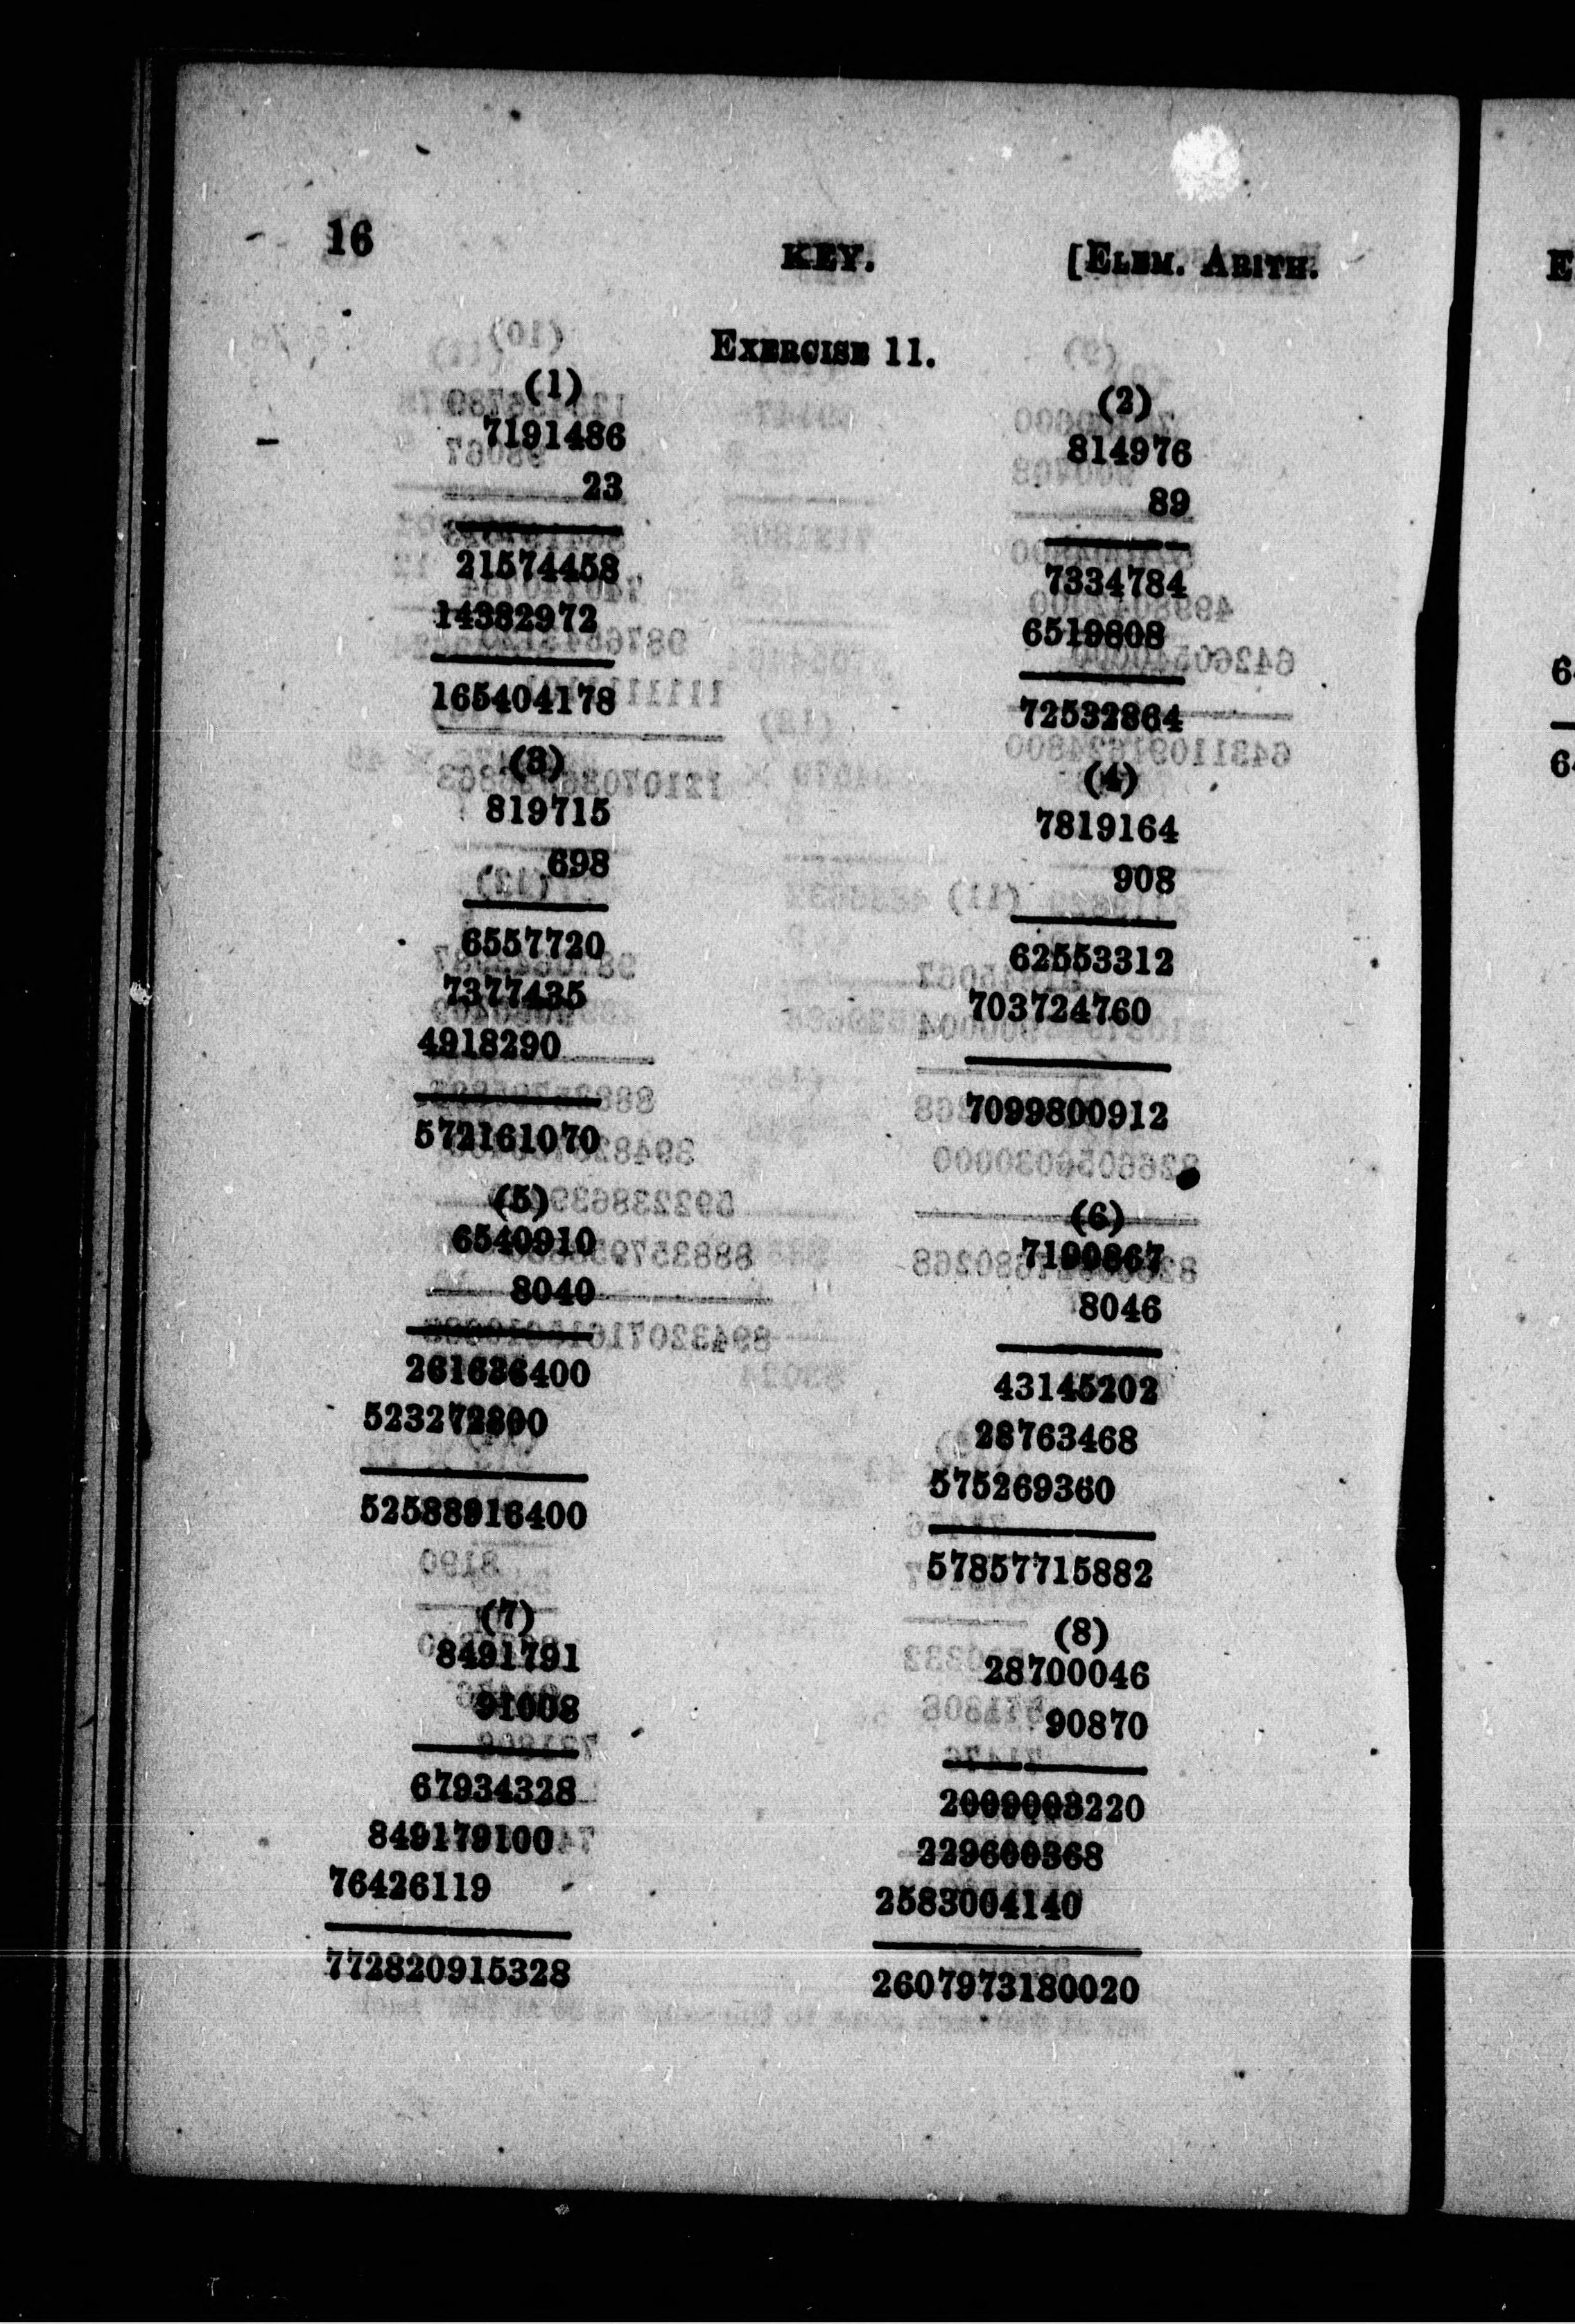 16
KEY.
[ELEM. ARITH.
EXERCISE 11.
(1)
7191486
23
21574458
14382972
165404178
(2)
814976
89
7334784
6519808
72532864
(3)
819715
698
6557720
7377435
4918290
572161070
(4)
7819164
908
62553312
703724760
7099800912
(5)
6540910
8040
261636400
523272800
52588916400
(6)
7190867
8046
43145202
28763468
575269360
57857715882
(7)
8491791
91008
67934328
849179100
76426119
772820915328
(8)
28700046
90870
2009003220
229600368
2583004140
2607973180020